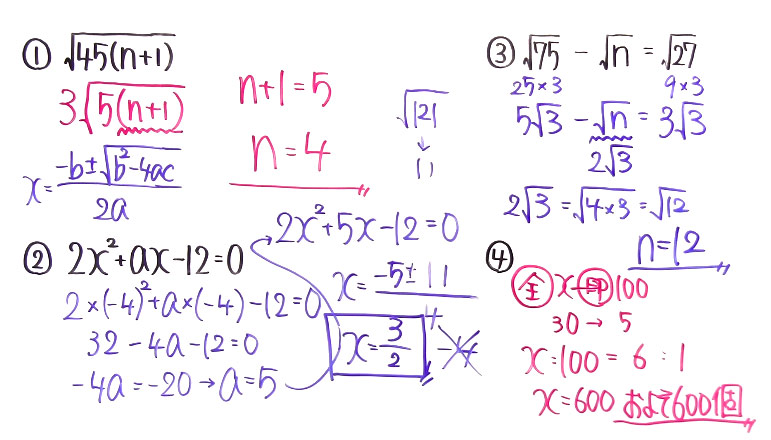 ① √45(n+1)
3√5(n+1)
n+1=5
n=4
√121
↓
11
x=-b±√b²-4ac/2a
② 2x²+ax-12=0
2×(-4)²+a×(-4)-12=0
32-4a-12=0
-4a=-20→a=5
2x²+5x-12=0
x=-5±11/4
x=3/2
-4
③ √75-√n=√27
25×3 9×3
5√3-√n=3√3
2√3
2√3=√4×3=√12
n=12
④
全 x 印 100
30→5
x:100=6:1
x=600 およそ600個